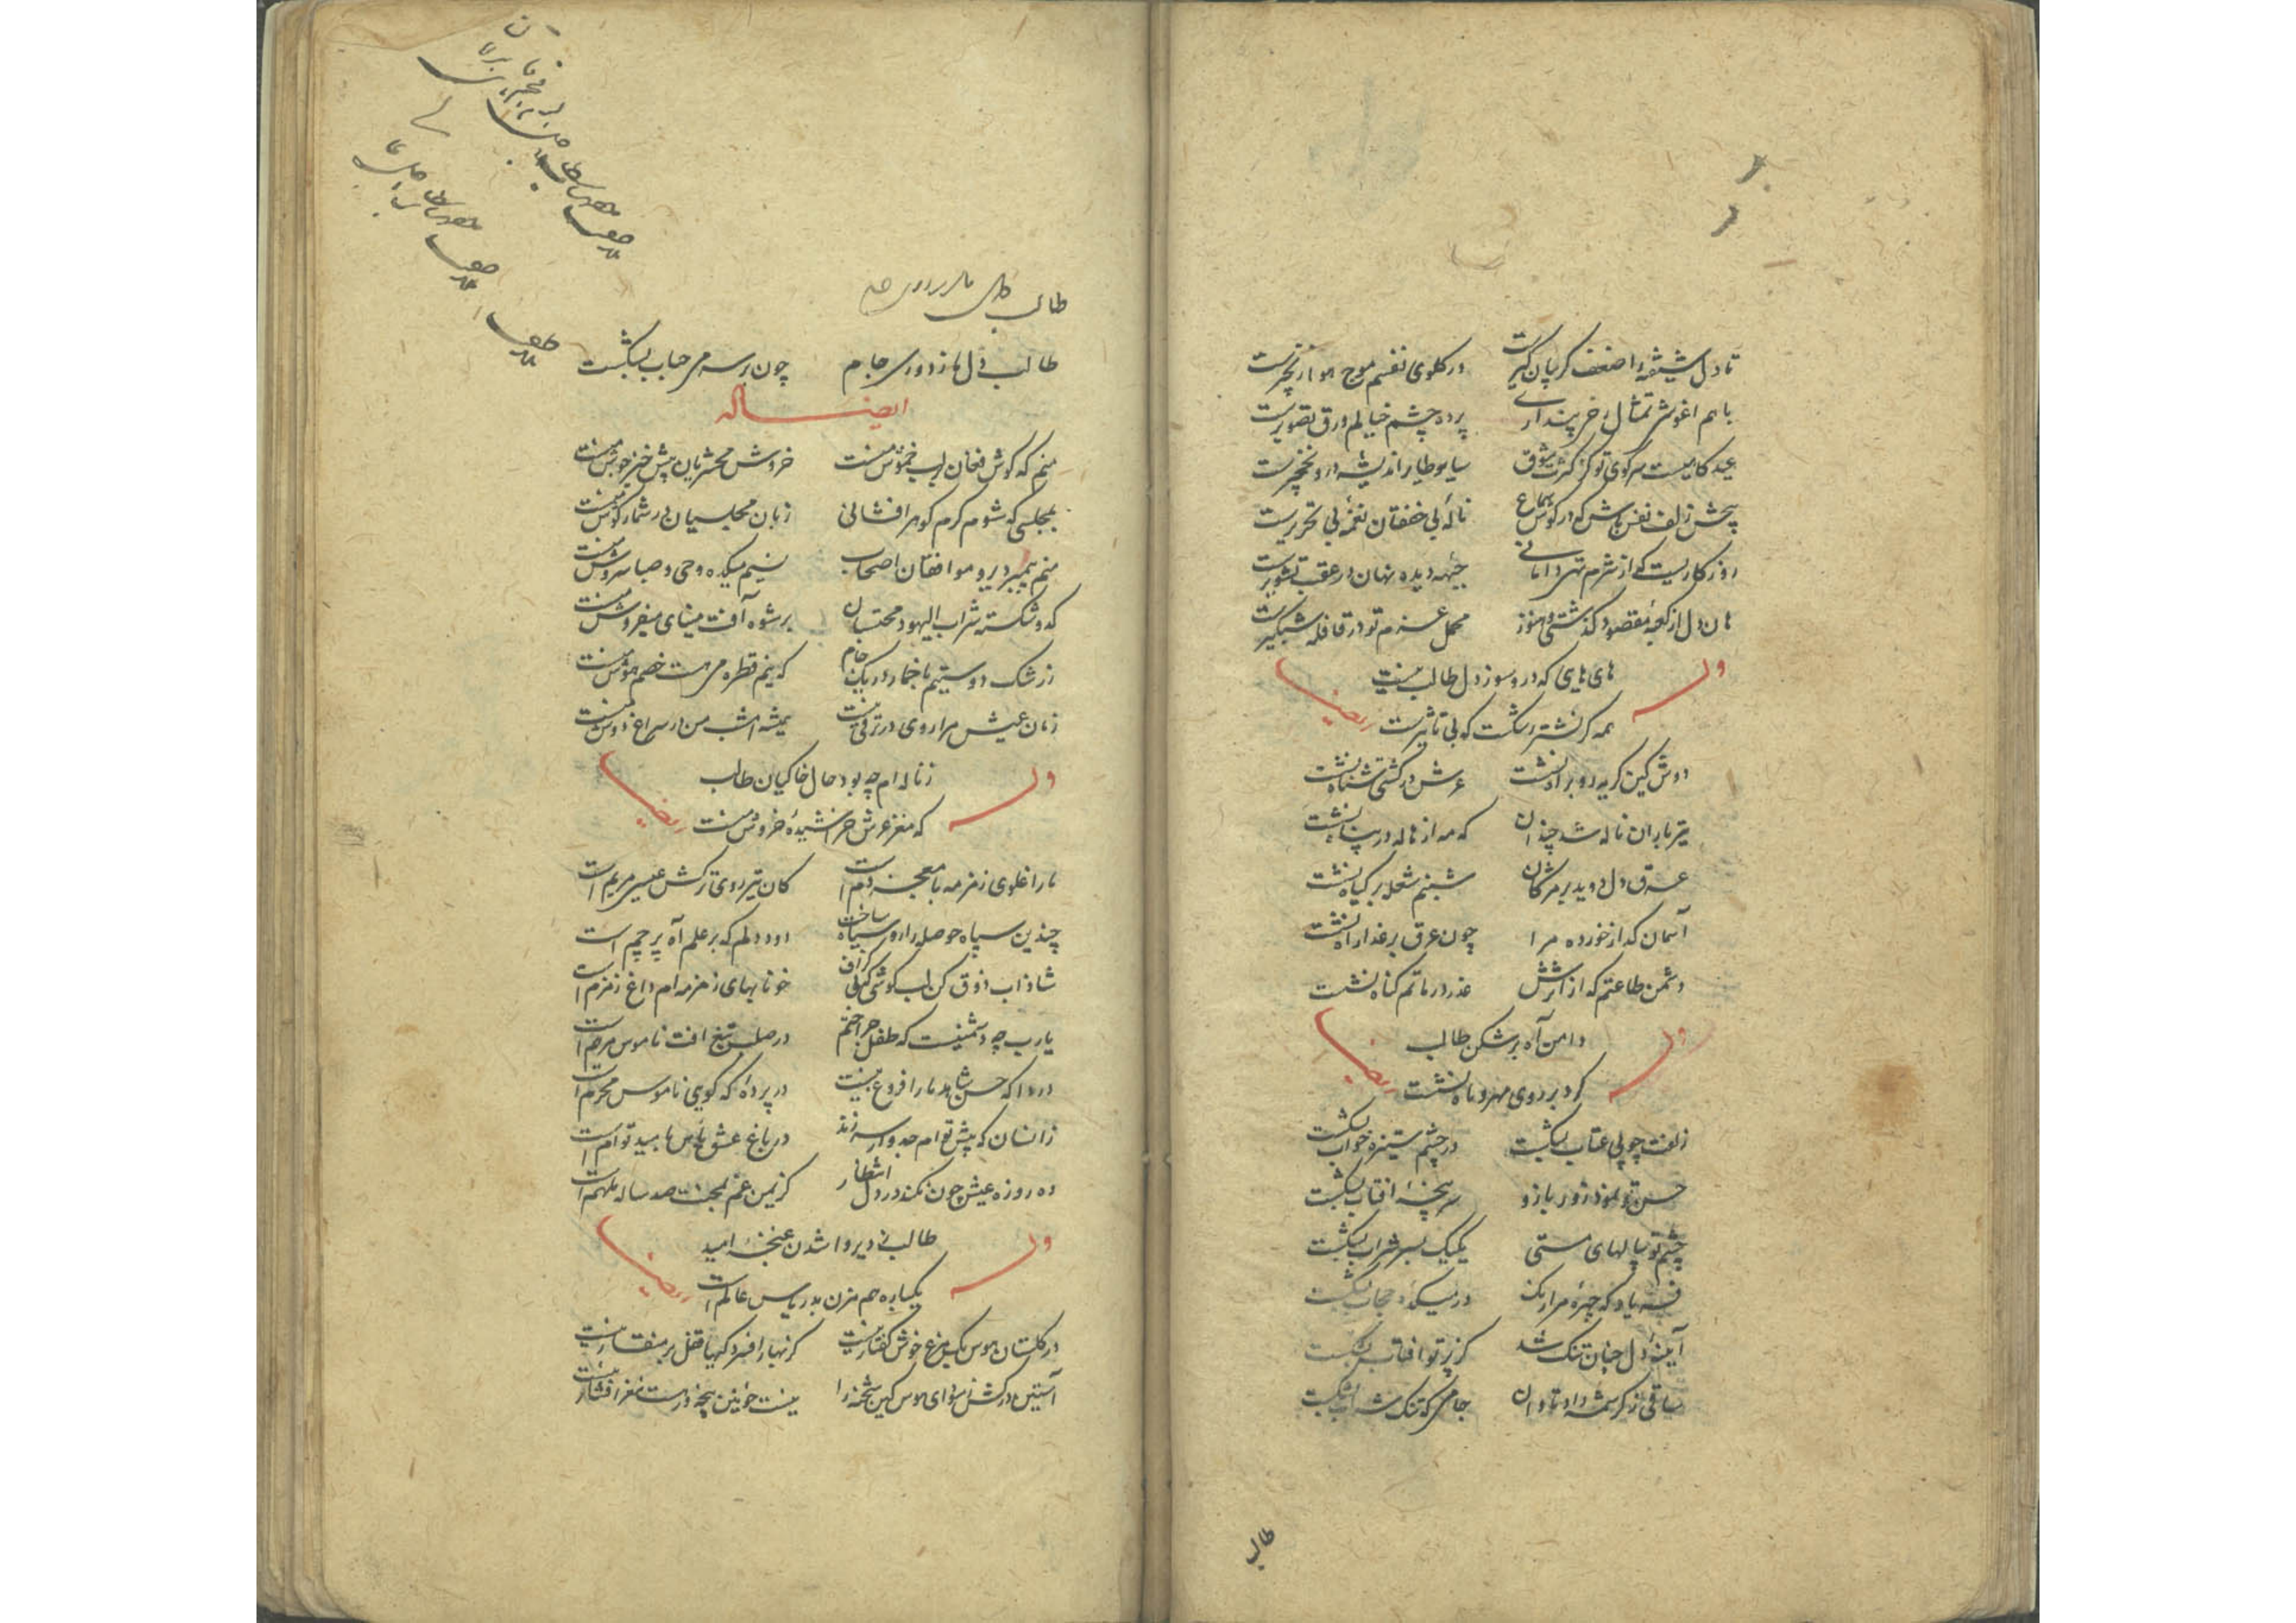 تا دل شیفته را ضعف گریبان گیرست در گلوی نفسم موج هوا زنجیرست
با هم اغوش تمثال پنداری پرده چشم خیالم ورق تصویرست
عید گاهیست سر کوی تو کز کثرت شوق اندیشه درو نخچیرست
پیچش زلف نفس باش که در گوش سماع نالهٔ بی خفقان نغمهٔ بی تحریرست
روزگاریست که از شرم تهی دامانی جبهه دیده نهان در عقب تشویرست
هان دل از کعبهٔ مقصود گذشتی و هنوز محمل عزم تو در قافله شبگیرست
های هایی که درو سوز دل طالب نیست
همه گر نشتر اشکست که بی تاثیرست
وله ایضا
دوش کین گریه رو براه نشست عرش در کشتی شناه نشست
تیر باران ناله شد چندان که مه از هاله در پناه نشست
عرق دل دوید بر مژگان شبنم شعله بر گیاه نشست
آسمان گداز خورده مرا چون عرق بر عذار آه نشست
دشمن طاعتم که از اثرش عذر در ماتم گناه نشست
دامن آه بر شکن طالب
گرد بر روی مهر و ماه نشست
وله ایضا
زلفت چو پی عتاب بشکست در چشم ستیزه خواب بشکست
حسن تو نمود زور بازو سر پنجهٔ افتاب بشکست
چشم تو پیالهای مستی یکیک بسر شراب بشکست
فریاد که چهرهٔ مرا رنگ در میکدهٔ حجاب بشکست
آینهٔ دل چنان تنک شد کز پرتو افتاب بشکست
ساقی ز کرشمه داد تاوان جامی که تنک شراب بشکست
طالب
طالب
طالب دل ما ز دوری جام چون بر سر می حباب بشکست
ایضا له
منم که گوش فغان بر لب خموش منست خروش محشریان پیش خیز جوش منست
بمجلسی که شوم گرم گوهر افشانی زبان مجلسیان در شمار گوش منست
منم پیمبر دیر و موافقان اصحاب نسیم میکده وحی و صبا سروش منست
کدو شکسته شراب الیهود محتسبان برشوه آفت مینای میفروش منست
ز رشک دوستیم با خمار در یک جام که نیم قطره می هست خصم هوش منست
زمان عیش مرا روی در ترقی نیست همیشه امشب من در سراغ دوش منست
ز ناله ام چه بود حال خاکیان طالب
که مغز عرش خراشیدهٔ خروش منست
وله ایضا
ما را غلوی زمزمه با معجز دم است کان تیر روی ترکش عیسی مریم است
چندین سپاه حوصله را رو سیاه ساخت دود دلم که بر علم آه پرچم است
شاداب ذوق کن لب گوشی که بی گزاف خونابهای زمزمه ام داغ زمزم است
یارب چه دشمنیست که طفل جراحتم در صلب تیغ افت ناموس مرهم است
دردا که حسن شاهد ما را فروغ نیست در پردهٔ که گویی ناموس محرم است
زانسان که پیش توام جدوار سر زند در باغ عشق یاس با مید توام است
ده روزه عیش چون نکند در دل انتظار کزیمن غم بمجنت صد ساله ملهم است
طالب پی دیر وا شدن غنچهٔ امید
یکباره هم مزن بدر یاس عالم است
وله ایضا
در گلستان هوس یک مرغ خوش گفتار نیست کز نهار افسردگیها قفل بر منقار نیست
آستین در کش ز سودای هوس کین شحنه را نیست خونین پنجهٔ دست مغز افشار نیست